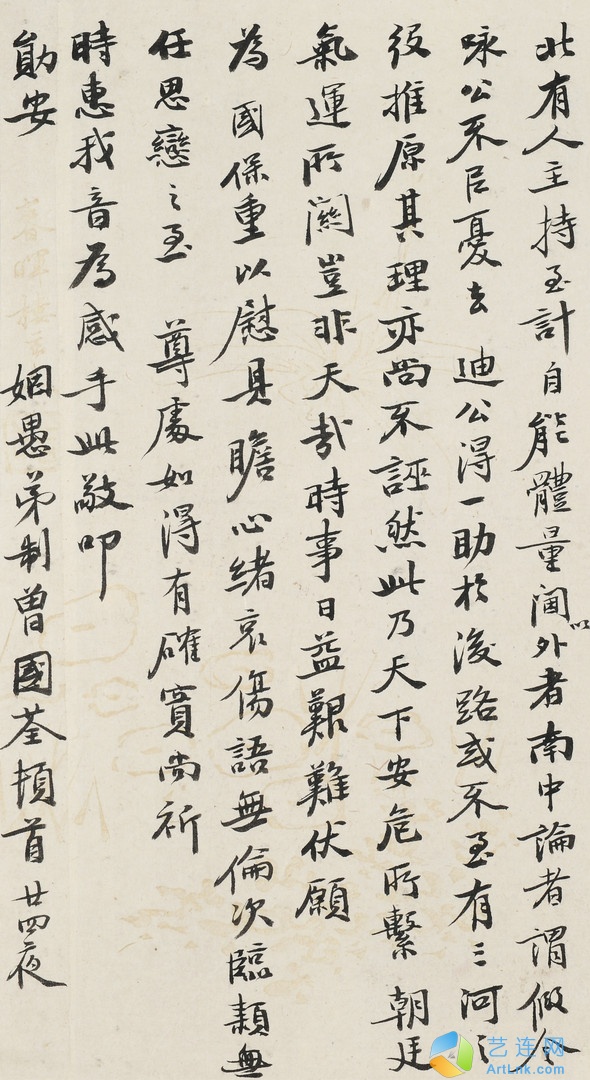 此有人主持至計自能體量閫以外者南中論者謂假令
咏公不以憂去 迪公得一助於後路或不至有三河之
役推原其理亦尚不誣然此乃天下安危所繫 朝廷
氣運所關豈非天哉時事日益艱難伏願
為 國保重以慰具瞻心緒哀傷語無倫次臨穎無
任思戀之至 尊處如得有確實尚祈
時惠我音為感手此敬叩
勛安
姻愚弟制曾國荃頓首 廿四夜
艺连网
ArtLnk.com